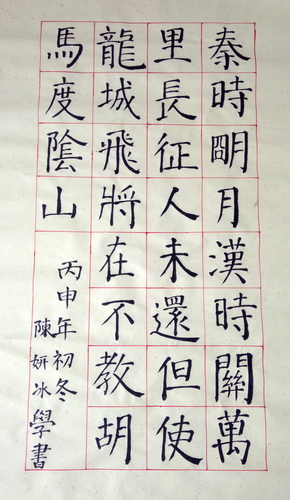 秦時明月漢時關萬
里長征人未還但使
龍城飛將在不教胡
馬度陰山
丙申年初冬
陳妍冰學書